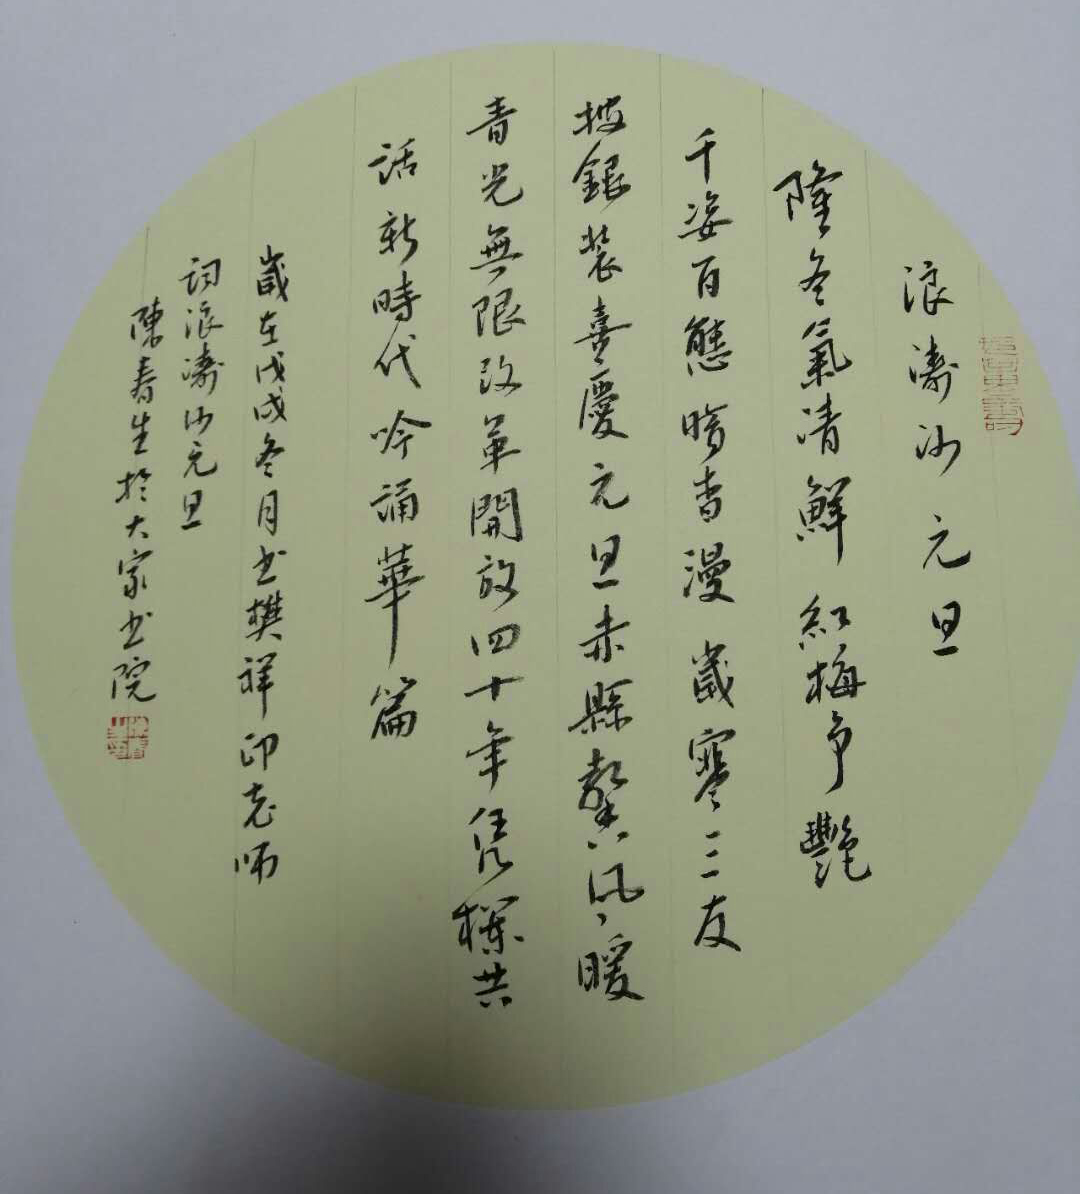 浪濤沙元旦
隆冬氣清鮮 紅梅争艷
千姿百態暗香漫 歲寒三友
披銀裝喜慶元旦赤縣風暖
春光無限改革開放四十年凭欄共
話新時代吟誦華篇
歲在戊戌冬月书樊祥印老师
詞浪濤沙元旦
陳春生於大家书院